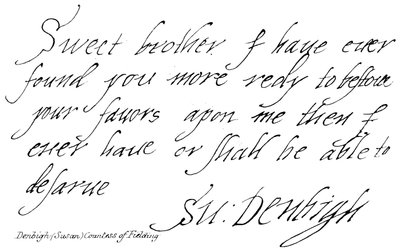 Sweet brother I haue euer
found you more redy to bestow
your fauors apon me then I
euer haue or shall be able to
desarue
Su: Denbigh
Denbigh (Susan) Countess of Fielding